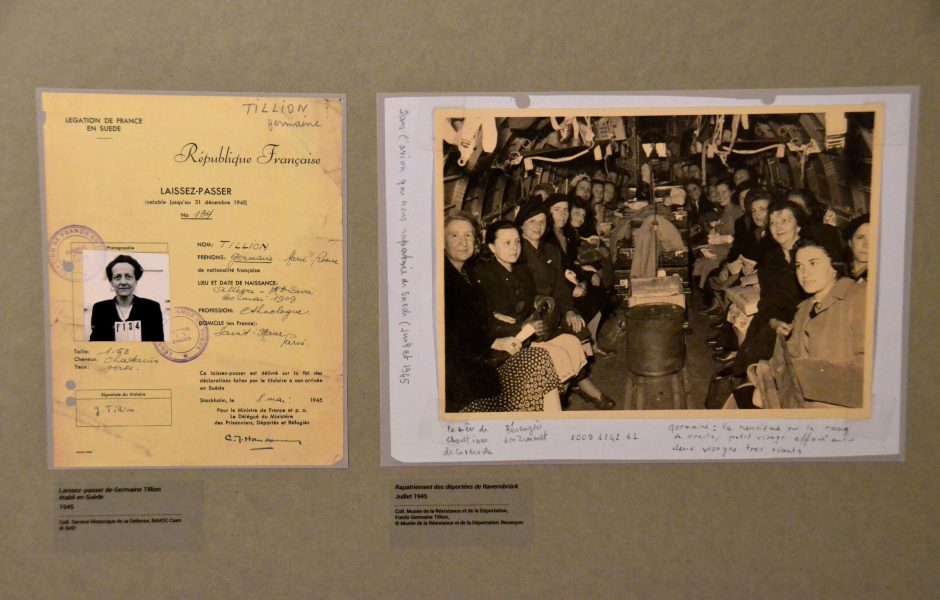 TILLION
germaine
LEGATION DE FRANCE
EN SUEDE
République Française
LAISSEZ-PASSER
(valable jusqu'au 31 décembre 1945)
No 134
Photographie
F134
NOM: TILLION
PRENOMS: Germaine Marie Rosine
de nationalité française
LIEU ET DATE DE NAISSANCE:
Allègre - Hte Loire
30 mai 1909
PROFESSION: Ethnologue
DOMICILE (en France):
Saint-Maur
Paris
Taille: 1.63
Cheveux: Chatains
Yeux: verts
Signature du titulaire
g Tillion
Ce laissez-passer est délivré sur la foi des
déclarations faites par le titulaire à son arrivée
en Suède
Stockholm, le 8 mai 1945
Pour le Ministre de France et p. o.
Le Délégué du Ministère
des Prisonniers, Déportés et Réfugiés
Laissez-passer de Germaine Tillion
établi en Suède
1945
Coll. Service Historique de la Défense, BAVCC Caen
© SHD
Dans l'avion qui nous rapatriait de Suède (juillet 1945
la mère de Bérangère
et
de
Germaine: la neuvième sur le rang
de droite, petit visage effacé entre
deux visages très riants
Rapatriement des déportées de Ravensbrück
Juillet 1945
Coll. Musée de la Résistance et de la Déportation,
Fonds Germaine Tillion,
© Musée de la Résistance et de la Déportation, Besançon